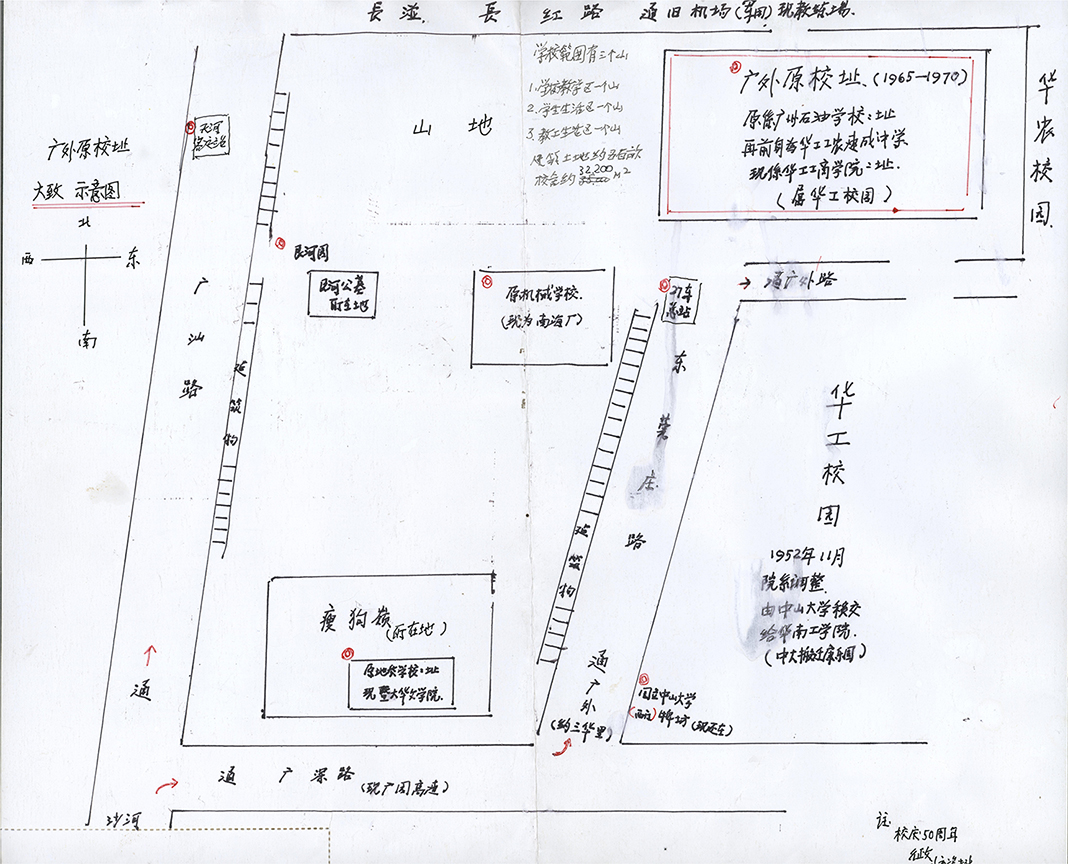 長湴. 長 红 路 通旧机场(军用)现教练場.
学校範围有三个山
1.学校教学区一个山
2.学生生活区一个山
3.教工生活区一个山
建筑土地约五百亩
校舍约32,200M²
广外原校址.(1965—1970)
原係广州石油学校:址
再前身为华工工农速成中学
现係华工工商学院:址.
(属华工校园)
华农校园
山 地
天河
广外原校址
大致 示意图
北
西 东
南
民河园
民河公墓
所在地
原机械学校.
(现为南海厂)
27车
总站
→ 通广外路
广汕路
建筑物
东莞庄路
建筑物
华工校园
1952年11月
院系调整
由中山大学移交
给华南工学院.
(中大搬迁康乐园)
瘦狗嶺(所在地)
原地质学校:址
现暨大华文学院.
通
通广外
(约三华里)
国立中山大学
(西边)牌坊(现还在)
通 广 深 路 (现广园高速)
沙河
註:
校庆50周年